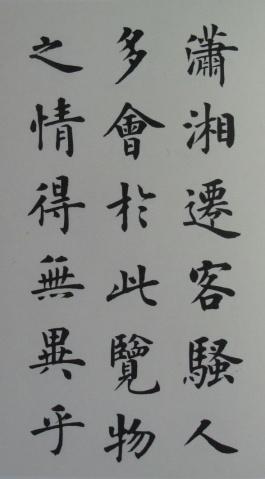 瀟湘遷客騷人
多會於此覽物
之情得無異乎